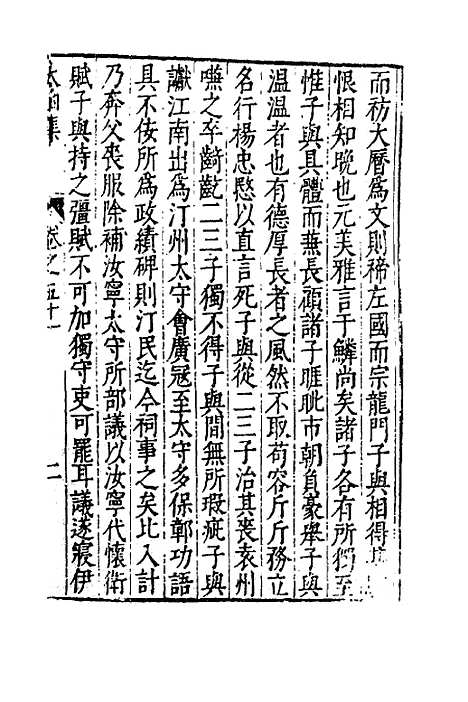 而祊大曆爲文則禘左國而宗龍門子與相得
恨相知晚也元美雅言于鱗尚矣諸子各有所獨至
惟子與具體而兼長頋諸子睚眦市朝負豪舉子與
温温者也有德厚長者之風然不取苟容斤斤務立
名行楊忠愍以直言死子與從二三子治其喪袁州
嗛之卒齮齕二三子獨不得子與間無所瑕疵子與
讞江南出爲汀州太守會廣冦至太守多保鄣功語
具不佞所爲政績碑則汀民迄今祠事之矣比入計
乃奔父喪服除補汝寧太守所部議以汝寧代懷衛
賦子與持之彊賦不可加獨守吏可罷耳議遂寢伊
太函集
卷之五十一
二